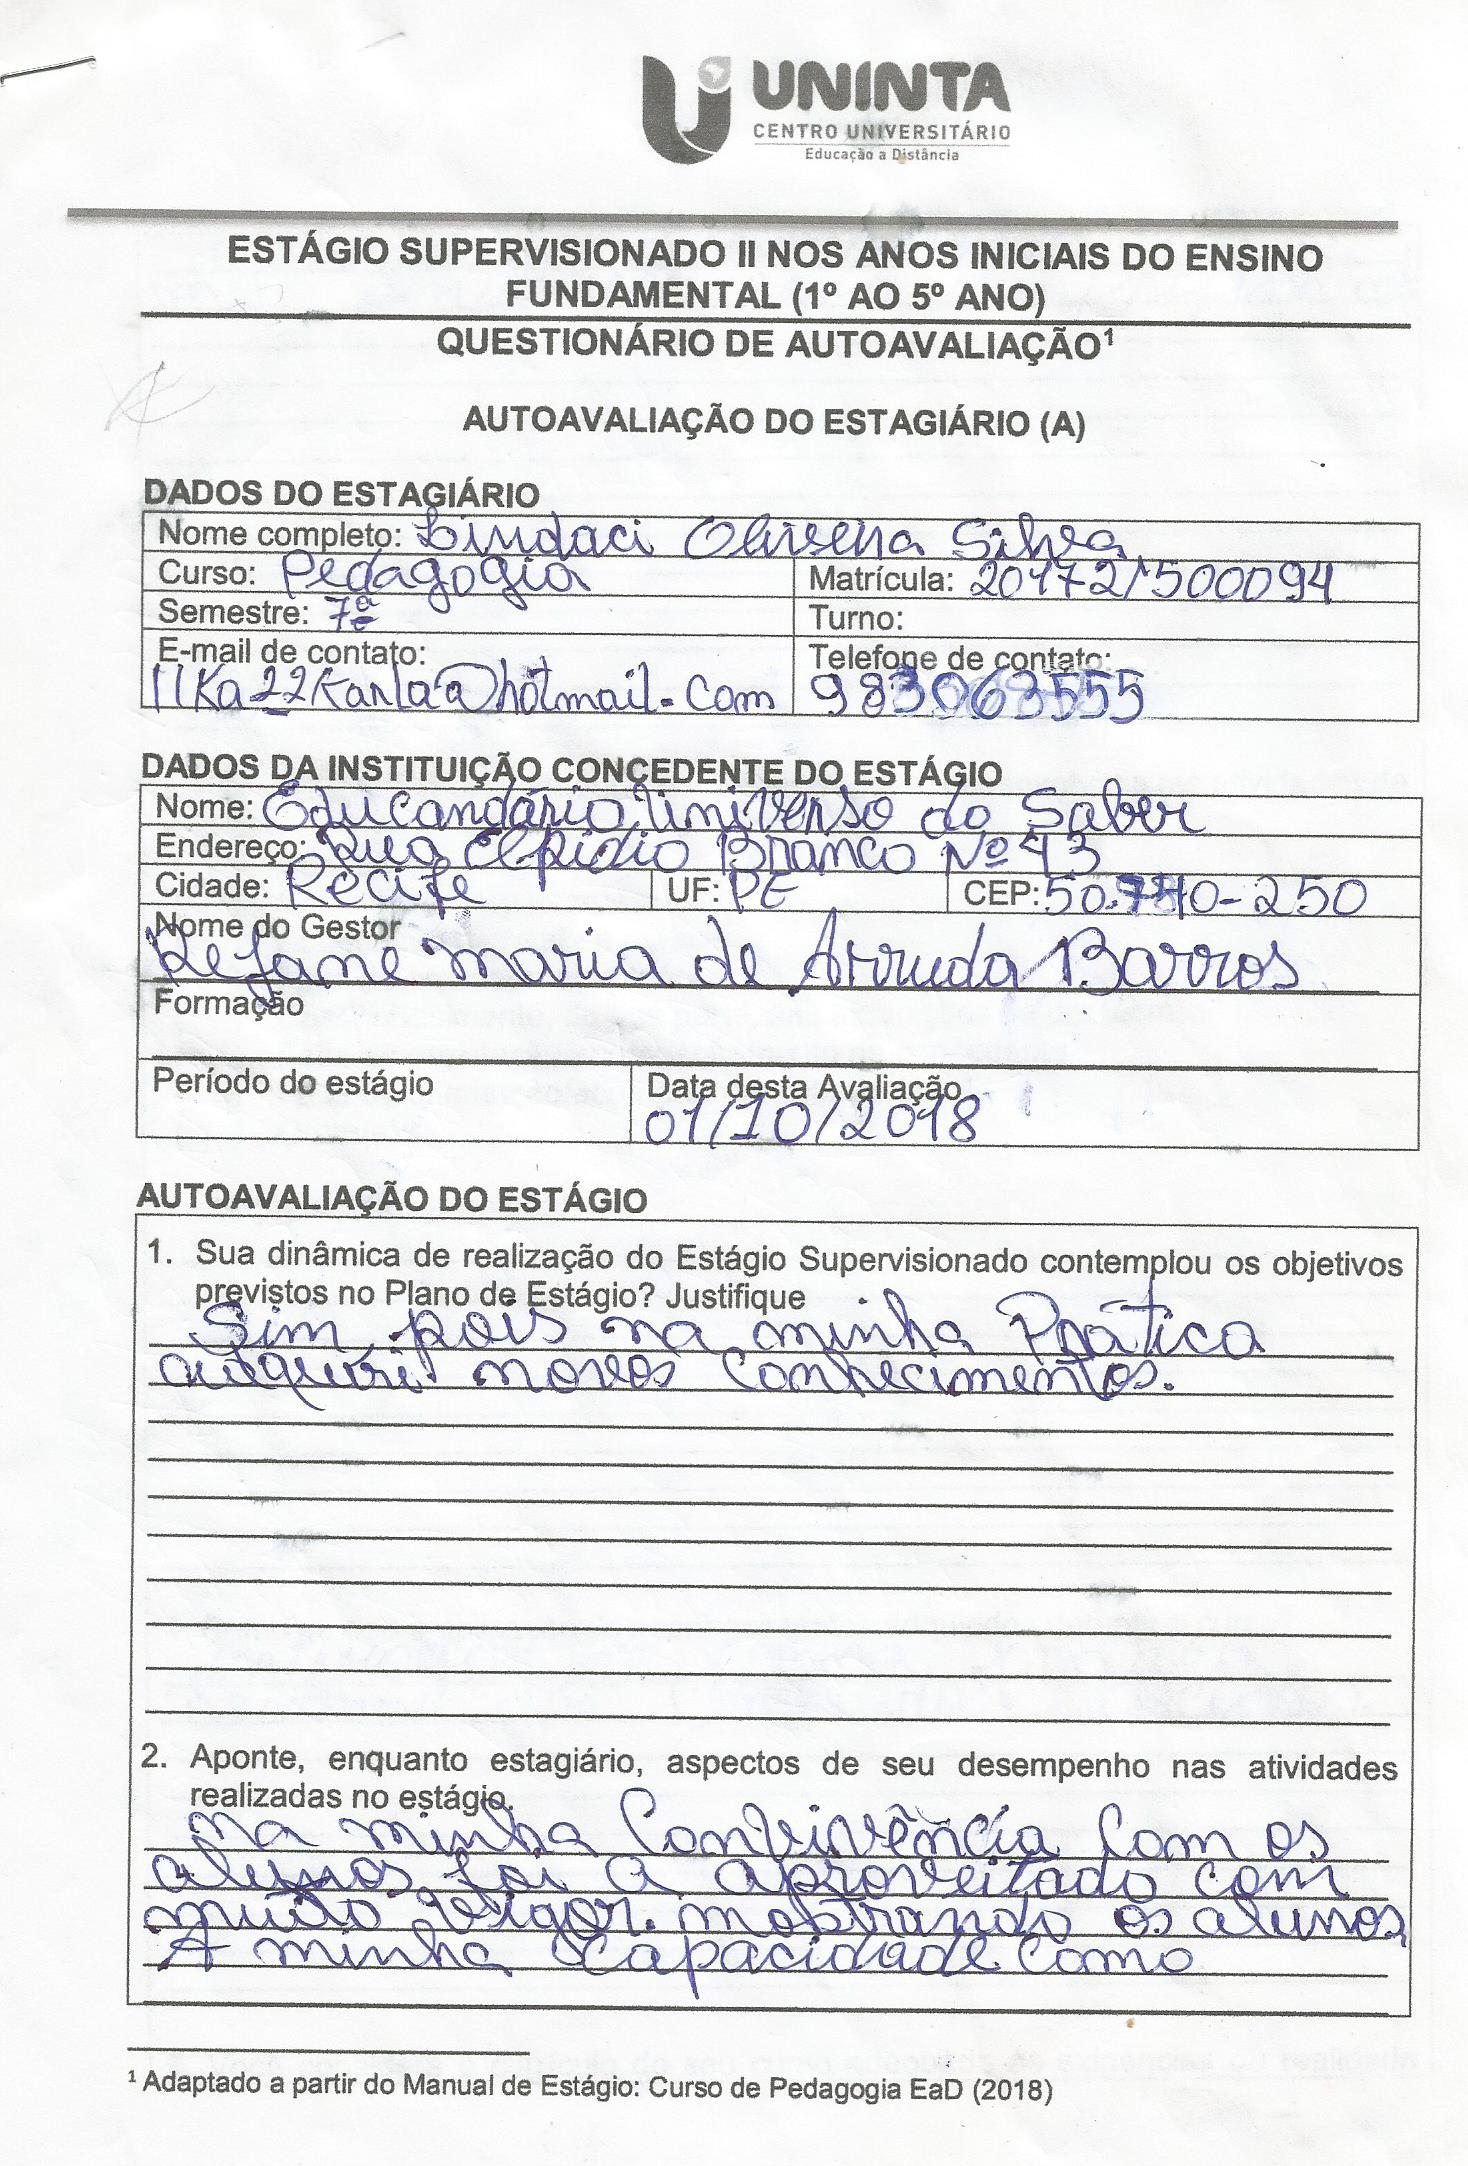 UNINTA
CENTRO UNIVERSITÁRIO
Educação a Distância
ESTÁGIO SUPERVISIONADO II NOS ANOS INICIAIS DO ENSINO
FUNDAMENTAL (1º AO 5º ANO)
QUESTIONÁRIO DE AUTOAVALIAÇÃO¹
AUTOAVALIAÇÃO DO ESTAGIÁRIO (A)
DADOS DO ESTAGIÁRIO
Nome completo: Lindaci Oliveira Silva
Curso: Pedagogia Matrícula: 20172/500094
Semestre: 7º Turno:
E-mail de contato: Telefone de contato:
11Ka22Karla@hotmail.com 983063555
DADOS DA INSTITUIÇÃO CONCEDENTE DO ESTÁGIO
Nome: Educandário Universo do Saber
Endereço: Rua Elpidio Branco Nº 43
Cidade: Recife UF: PE CEP: 50.740-250
Nome do Gestor
Rejane maria de Arruda Barros
Formação
Período do estágio Data desta Avaliação
01/10/2018
AUTOAVALIAÇÃO DO ESTÁGIO
1. Sua dinâmica de realização do Estágio Supervisionado contemplou os objetivos
previstos no Plano de Estágio? Justifique
Sim, pois na minha Prática
adqueri novos conhecimentos.
2. Aponte, enquanto estagiário, aspectos de seu desempenho nas atividades
realizadas no estágio.
na minha Convivência com os
alunos foi a aproveitado com
muito vigor. mostrando os alunos
A minha Capacidade Como
¹ Adaptado a partir do Manual de Estágio: Curso de Pedagogia EaD (2018)